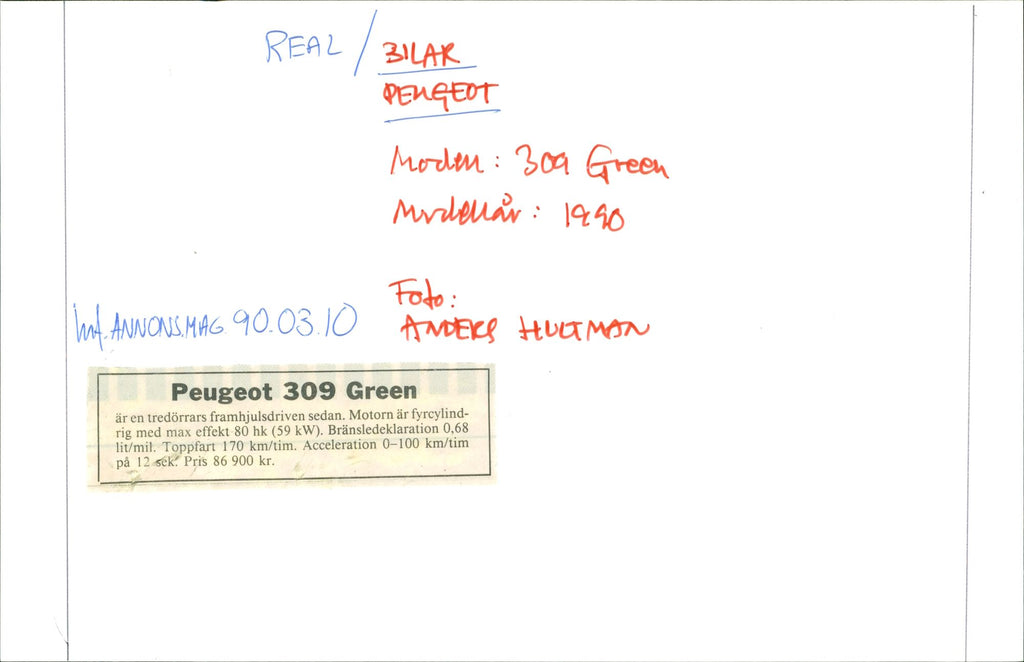 REAL / BILAR
PEUGEOT
Modell : 309 Green
Modellår : 1990
Foto :
ANDERS HULTMAN
Inf. ANNONS.MAG 90.03.10
Peugeot 309 Green
är en tredörrars framhjulsdriven sedan. Motorn är fyrcylind-
rig med max effekt 80 hk (59 kW). Bränsledeklaration 0,68
lit/mil. Toppfart 170 km/tim. Acceleration 0–100 km/tim
på 12 sek. Pris 86 900 kr.